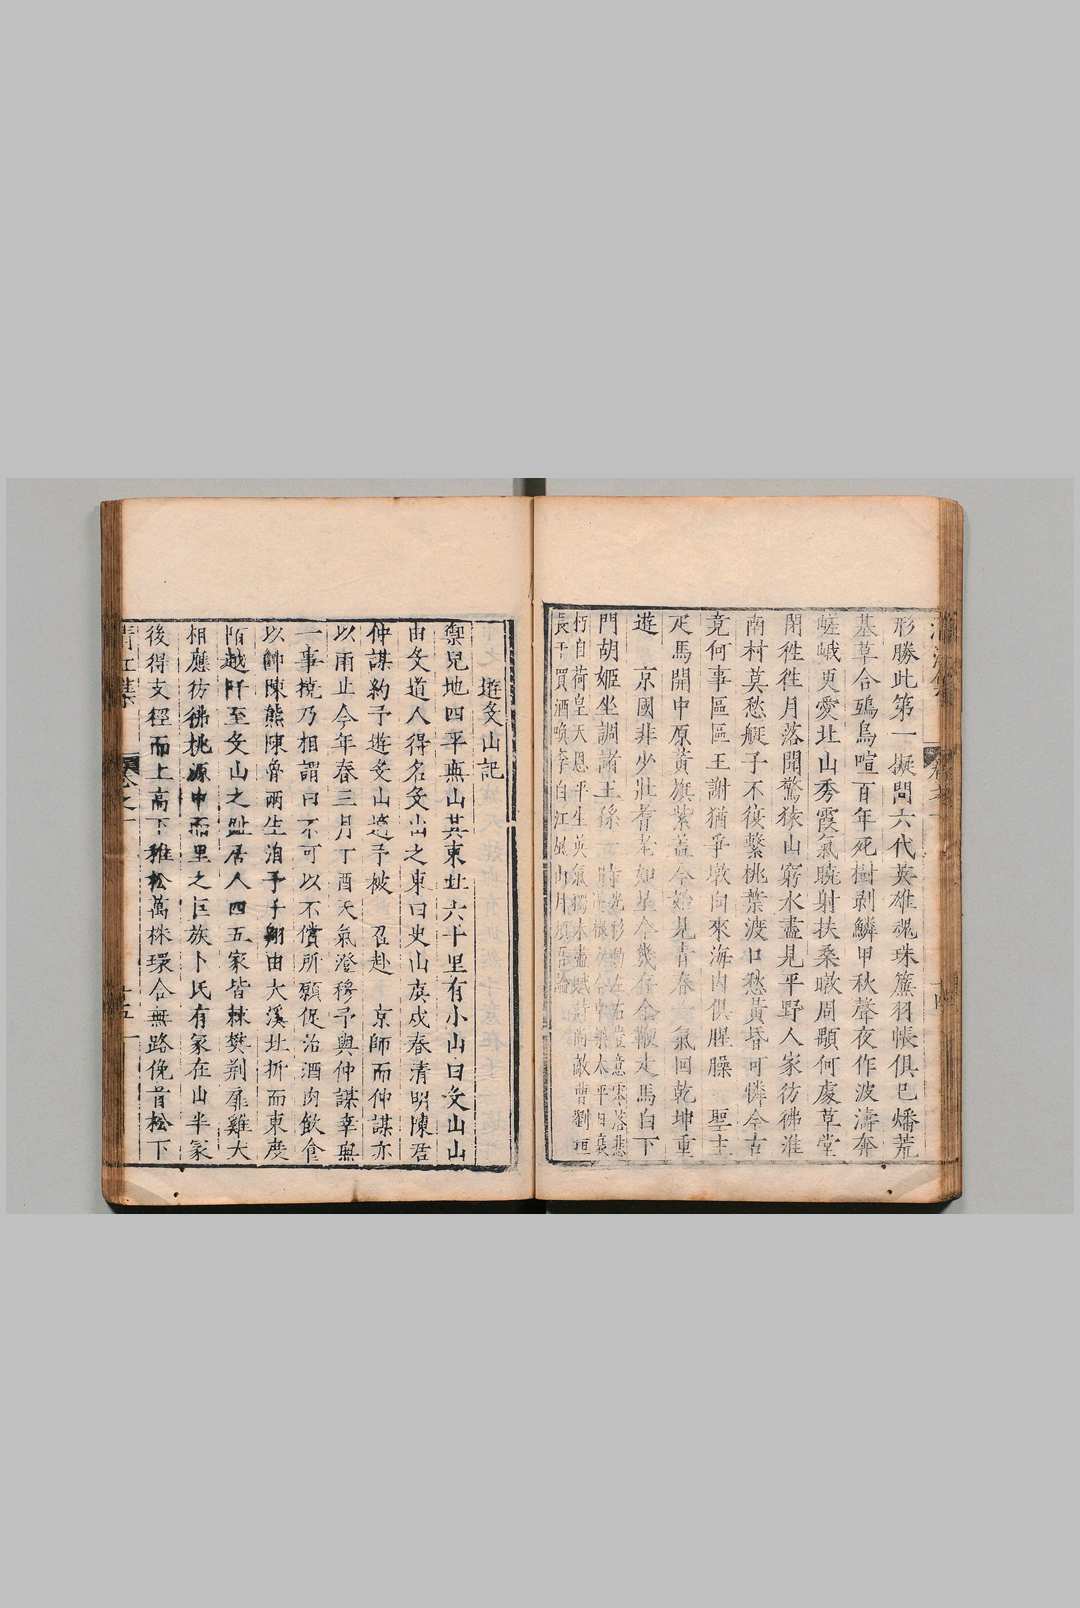 形勝此第一擬問六代英雄魂珠簾羽帳俱已燔荒
基草合鴉烏喧百年死樹剝鱗甲秋聲夜作波濤奔
嵯峨更愛北山秀霞氣曉射扶桑暾周顒何處草堂
閉徃徃月落聞驚猿山窮水盡見平野人家彷彿淮
南村莫愁艇子不復繫桃葉渡口愁黃昏可憐今古
竟何事區區王謝猶爭墩向來海內俱腥臊 聖主
疋馬開中原黃旗紫蓋今 見青春 氣回乾坤重
遊 京國非少壯耆老如星今幾存金鞭走馬白下
門胡姬坐調諸王孫
朽自荷皇天恩平生英氣獨未 賦詩尚敵曹劉垣
長干買酒喚李白江風山月 論
遊殳山記
禦兒地四平無山其東北六十里有小山曰殳山山
由殳道人得名殳山之東曰史山庚戌春清明陳君
仲謀約予遊殳山適予被 召赴 京師而仲謀亦
以雨止今年春三月丁酉天氣澄穆予與仲謀幸無
一事撓乃相謂曰不可以不償所願促治酒肉飲食
以帥陳熊陳魯兩生洎予子翮由大溪北折而東度
陌越阡至殳山之趾居人四五家皆棘樊荆扉雞犬
相應彷彿桃源中而里之巨族卜氏有冢在山半冢
後得支徑而上高下稚松萬株環合無路俛首松下
清江集
卷之
十五